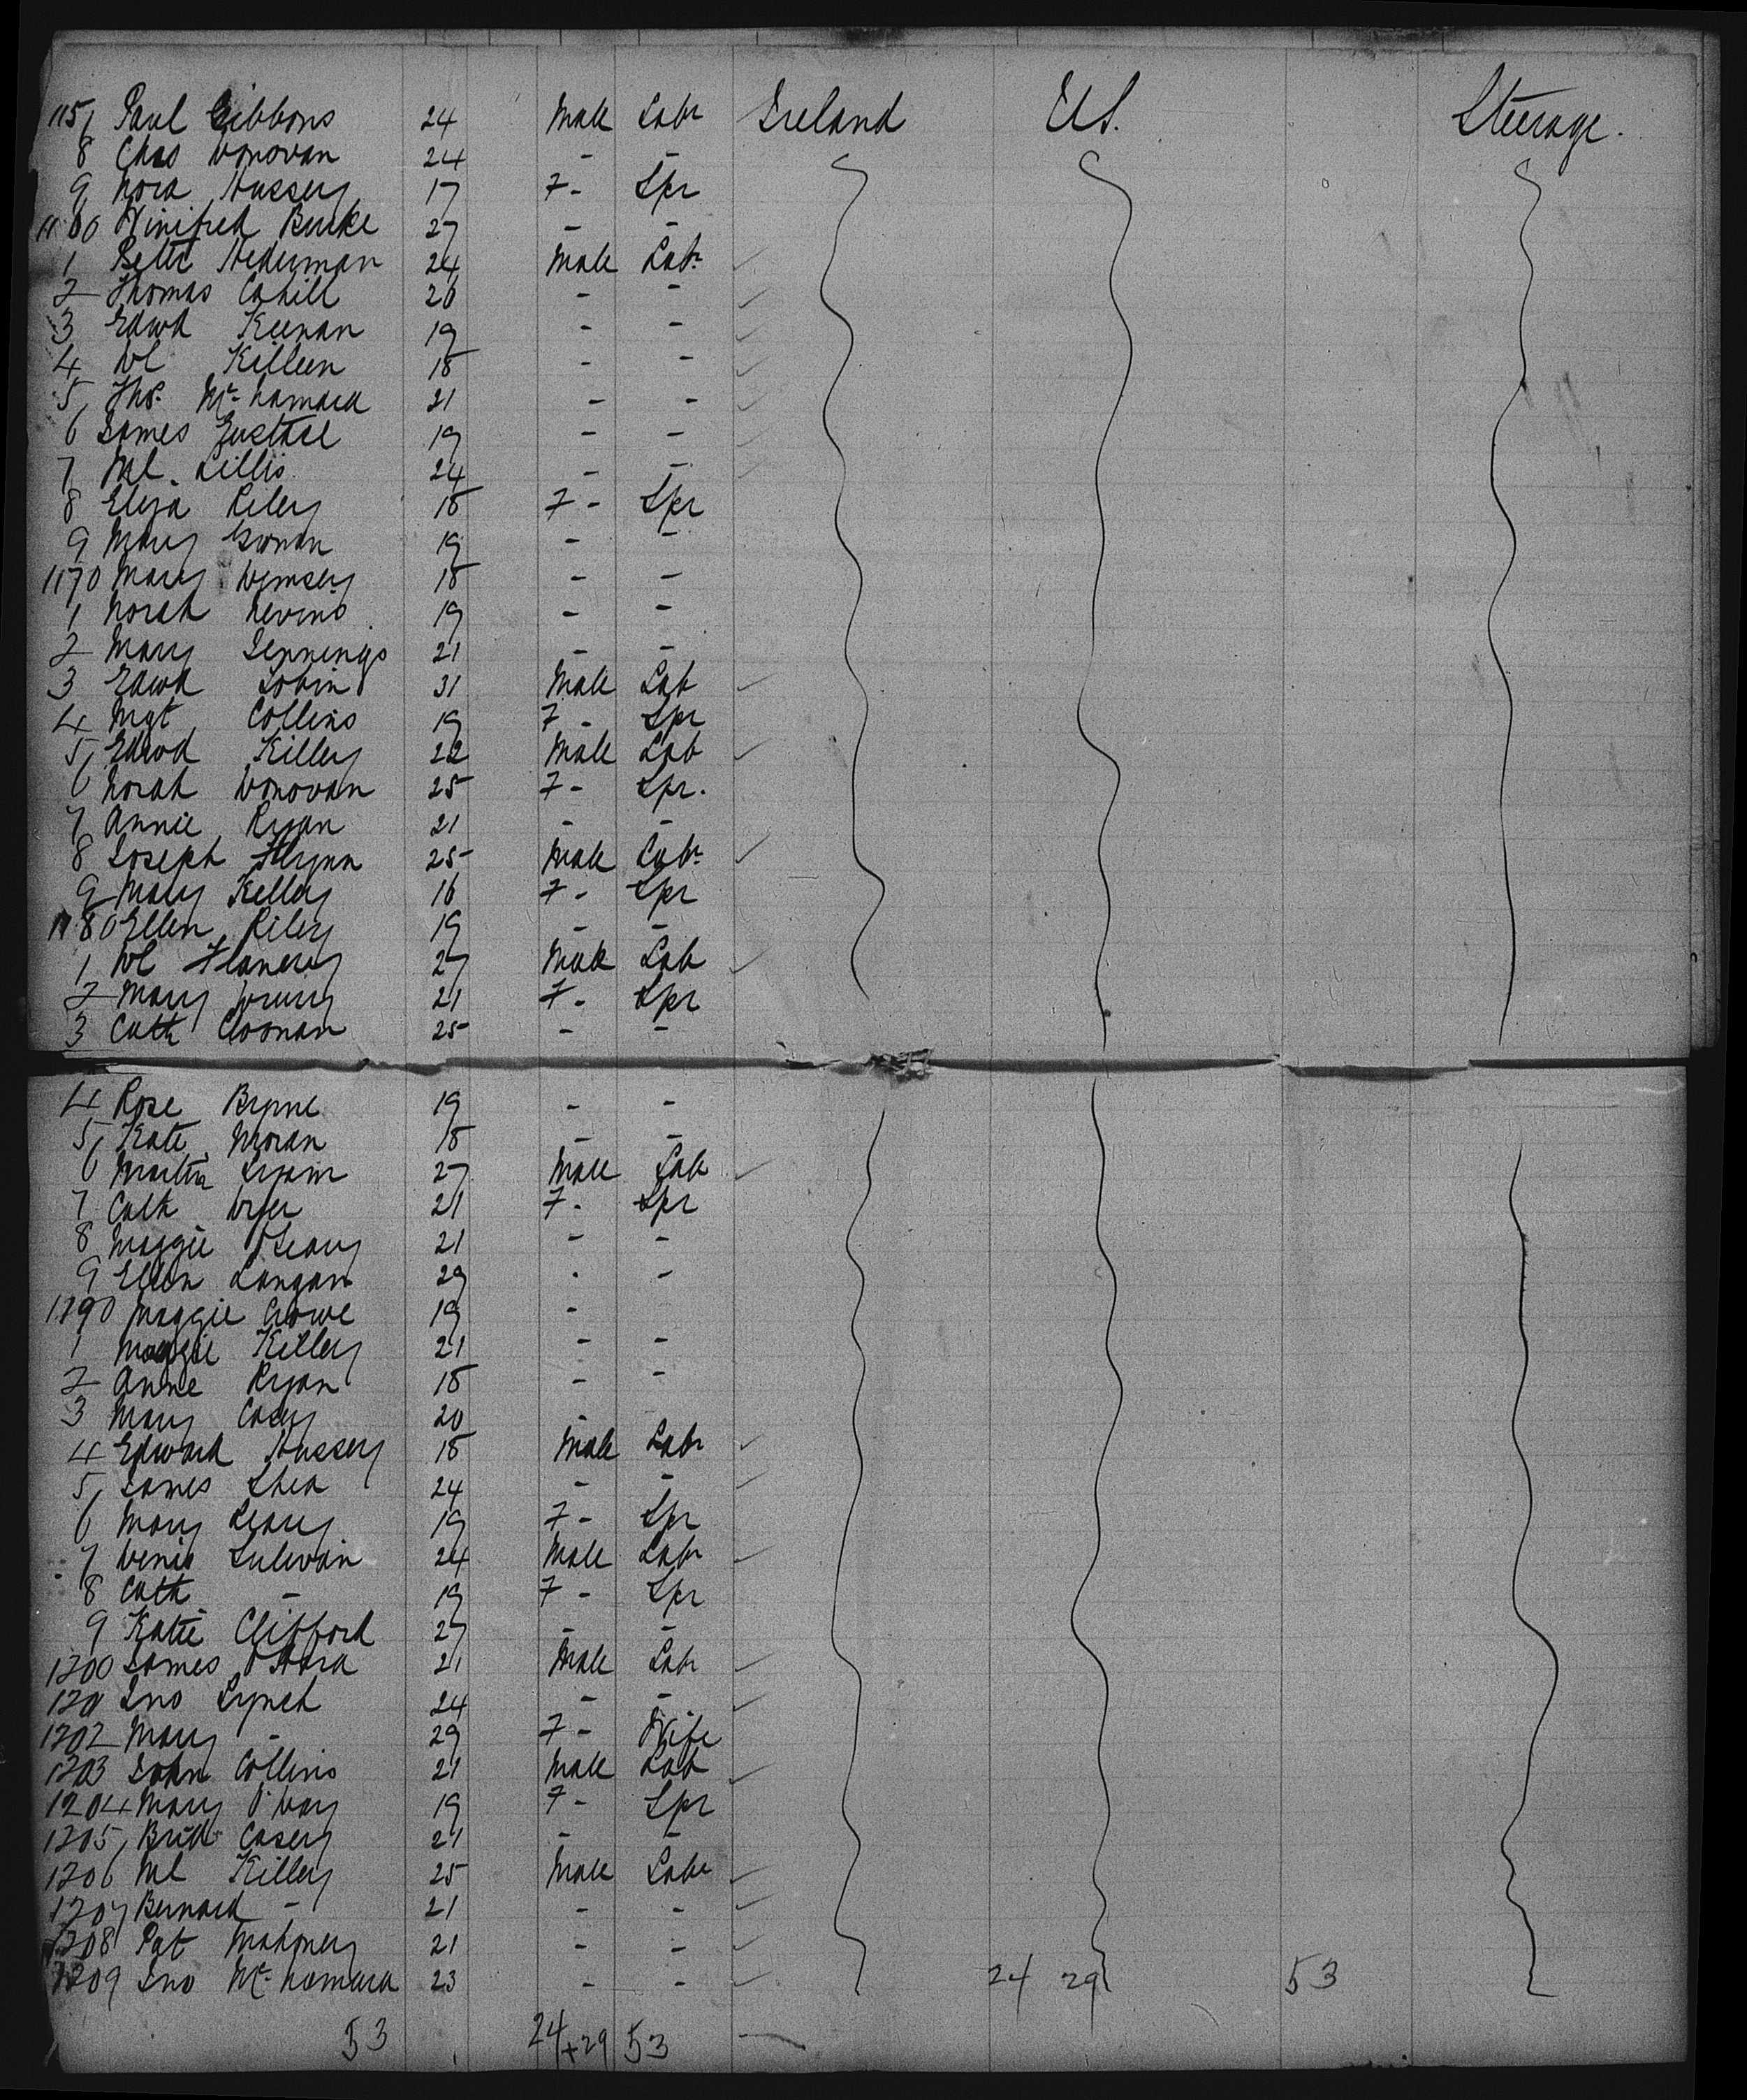 1157 Paul Gibbons 24 Male Labr Ireland U.S. Steerage.
8 Chas Donovan 24 - -
9 Nora Hussey 17 F- Spr
1160 Winifred Burke 27 - -
1 Peter Hederman 24 Male Labr
2 Thomas Cahill 26 - -
3 Edwd Keenan 19 - -
4 Wl Killeen 18 - -
5 Thos McNamara 21 - -
6 James Eustace 19 - -
7 Ml. Lillis 24 - -
8 Eliza Riley 18 F- Spr
9 Mary 19 - -
1170 Mary Dempsey 18 - -
1 Norah Nevins 19 - -
2 Mary Jennings 21 - -
3 Edwd Tobin 31 Male Lab
4 Mgt Collins 19 F- Spr
5 Edwd Killey 22 Male Lab
6 Norah Donovan 25 F- Spr.
7 Annie Ryan 21 - -
8 Joseph Flynn 25 Male Labr
9 Mary Kelley 16 F- Spr
1180 Ellen Riley 19 - -
1 Wl Flanery 27 Male Lab
2 Mary Drury 21 F- Spr
3 Cath Cloonan 25 - -
4 Rose Byrne 19 - -
5 Kate Moran 18 - -
6 Martin Lyam 27 Male Lab
7 Cath Dyer 21 F- Spr
8 Maggie O'Leary 21 - -
9 Ellen Langan 29 - -
1190 Maggie Crowe 19 -
1 Maggie Killey 21 - -
2 Anne Ryan 18 - -
3 Mary Casey 20 -
4 Edward Hussey 18 Male Labr
5 James Shea 24 - -
6 Mary Leary 19 F- Spr
7 Denis Sulivain 24 Male Labr
8 Cath - 19 F- Spr
9 Katie Clifford 27 - -
1200 James O'Hara 21 Male Labr
1201 Jno Lynch 24 - -
1202 Mary - 29 F- Wife
1203 John Collins 21 Male Lab
1204 Mary O'Day 19 F- Spr
1205 Brid Casey 21 - -
1206 Ml Killey 25 Male Labr
1207 Bernard - 21 - -
1208 Pat Mahoney 21 - -
1209 Jno McNamara 23 - - 24 29 53
53 24+29 53